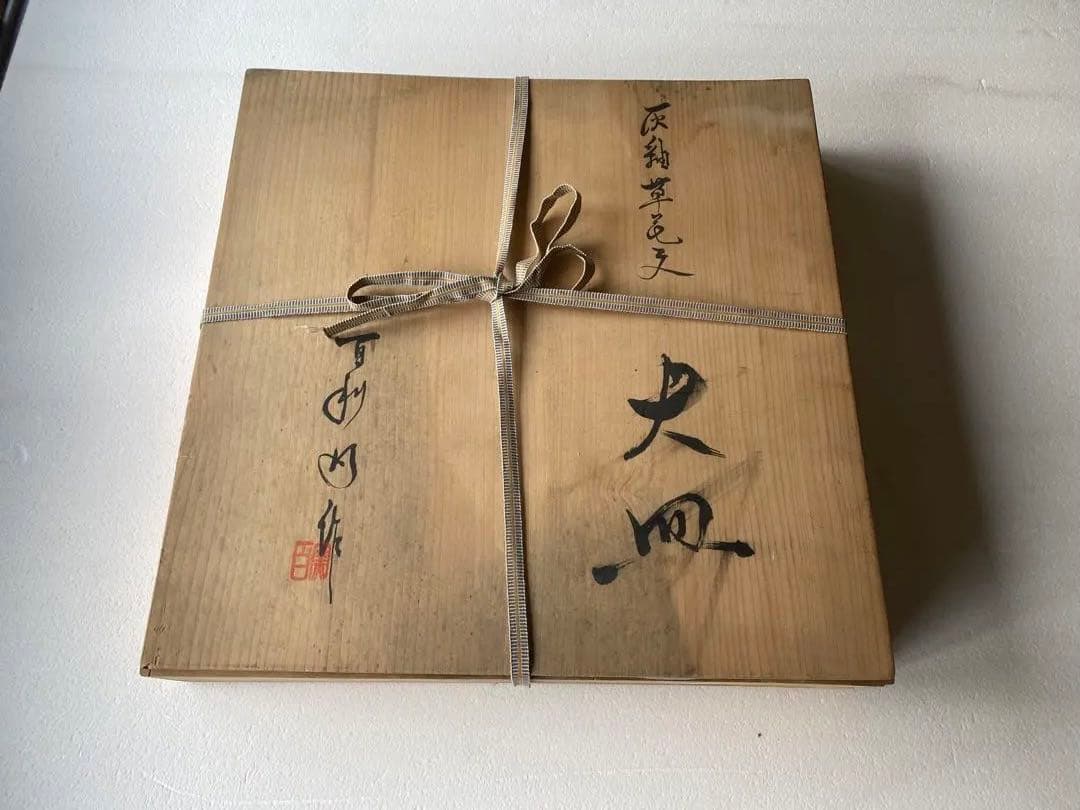 灰釉草花文
大皿
百利明作